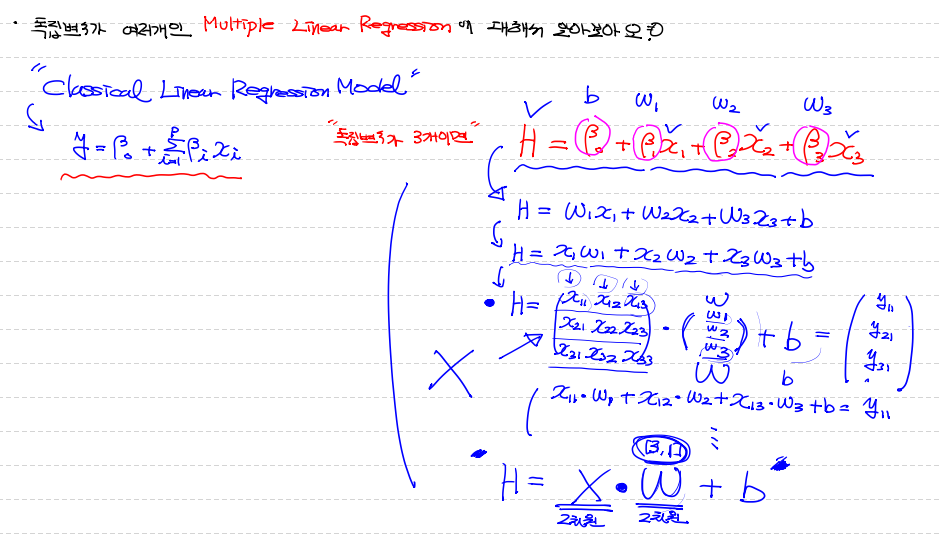 · 독립변수가 여러개인 Multiple Linear Regression에 대해서 알아보아요!
"Classical Linear Regression Model"
y = β₀ + Σᵢ₌₁ᵖ βᵢxᵢ
"독립변수가 3개이면"
b w₁ w₂ w₃
H = β₀ + β₁x₁ + β₂x₂ + β₃x₃
H = w₁x₁ + w₂x₂ + w₃x₃ + b
H = x₁w₁ + x₂w₂ + x₃w₃ + b
w
• H = (x₁₁ x₁₂ x₁₃ · (w₁ + b = (y₁₁
x₂₁ x₂₂ x₂₃ w₂ y₂₁
x₃₁ x₃₂ x₃₃) w₃) y₃₁)
X W b
x₁₁·w₁ + x₁₂·w₂ + x₁₃·w₃ + b = y₁₁
⋮
[3,1]
• H = X • W + b
2차원 2차원